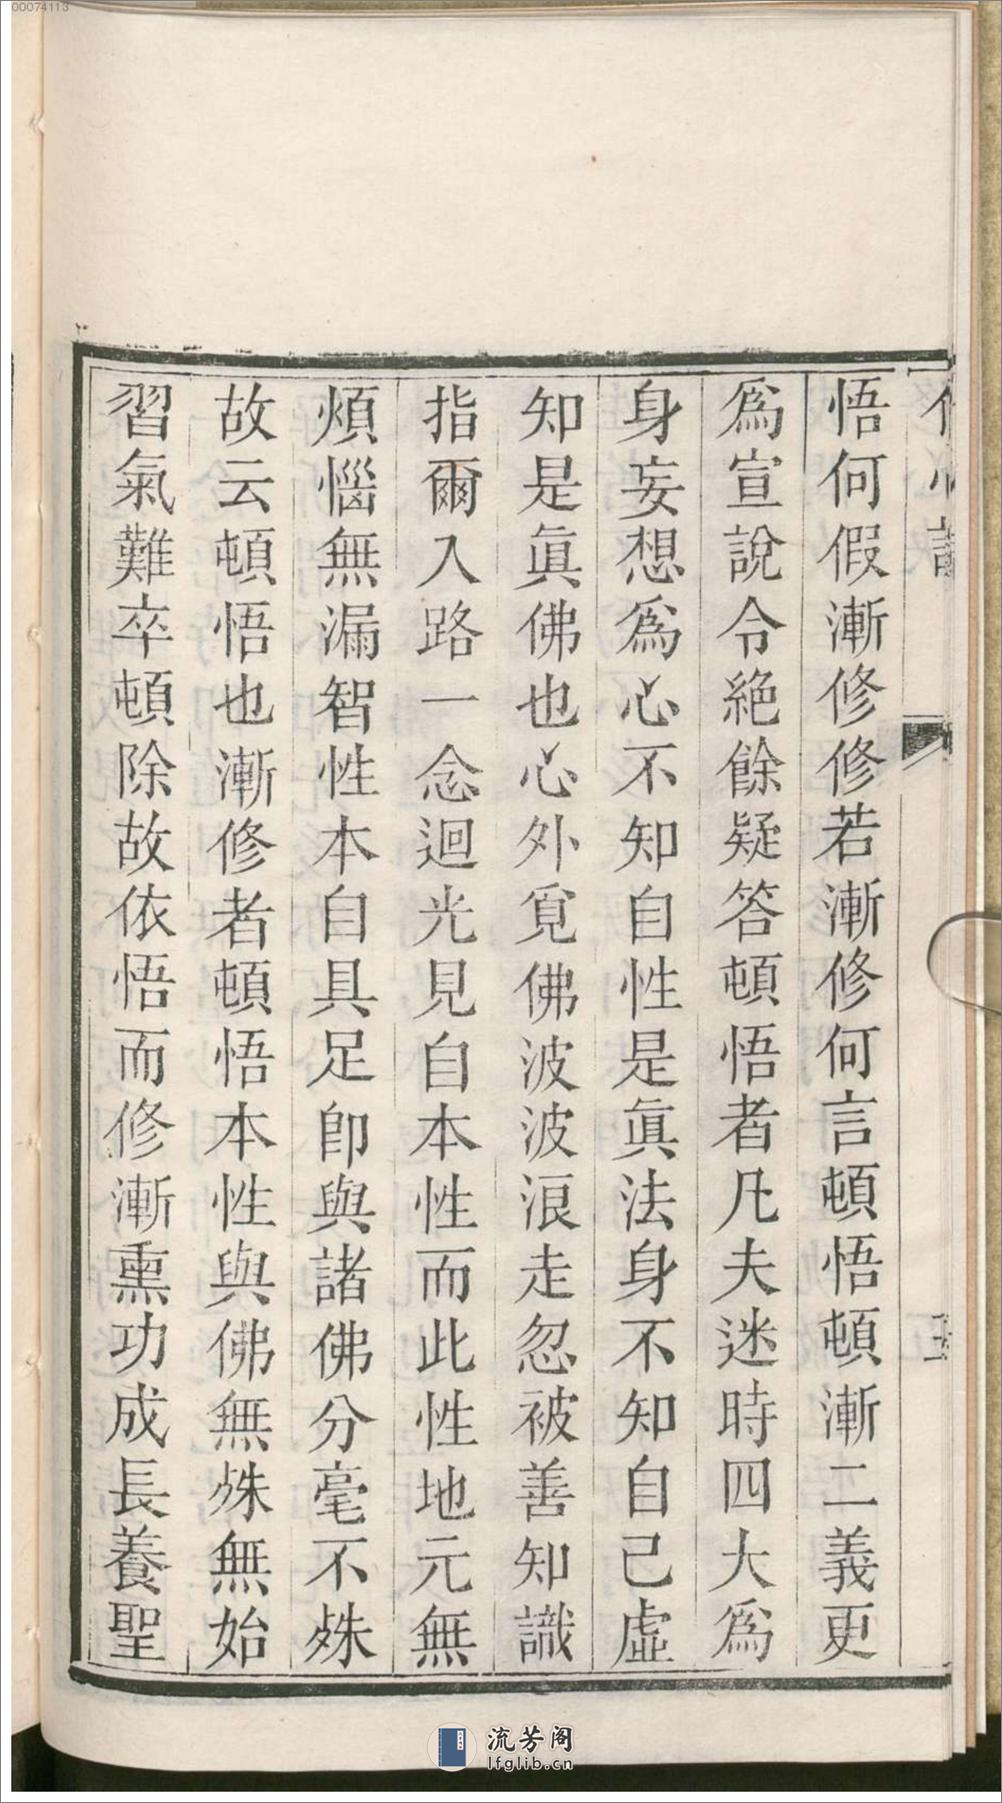 00074113
悟何假漸修修若漸修何言頓悟頓漸二義更
爲宣說令絶餘疑答頓悟者凡夫迷時四大爲
身妄想爲心不知自性是眞法身不知自己虛
知是眞佛也心外覔佛波波浪走忽被善知識
指爾入路一念迴光見自本性而此性地元無
煩惱無漏智性本自具足卽與諸佛分毫不殊
故云頓悟也漸修者頓悟本性與佛無殊無始
習氣難卒頓除故依悟而修漸熏功成長養聖
流芳阁
lfglib.cn